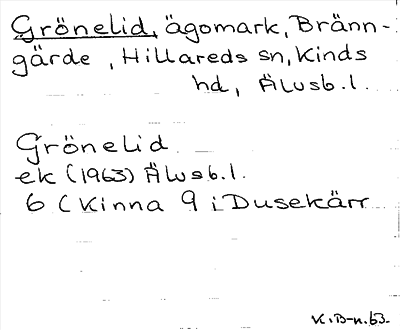 Grönelid, ägomark, Bränn-
gärde, Hillareds sn, Kinds
hd, Älvsb. l.
Grönelid
ek (1963) Älvsb. l.
6 (Kinna 9 i Dusekärr
K.B-n.63.